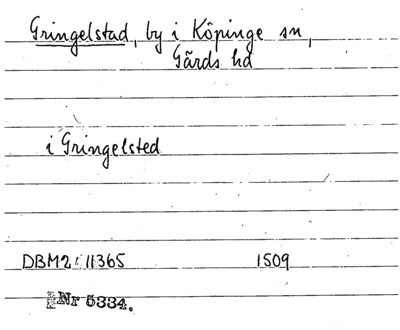 Gringelstad, by i Köpinge sn,
Gärds hd
i Gringelsted
DBM2: 11365 1509
Nr 5334.